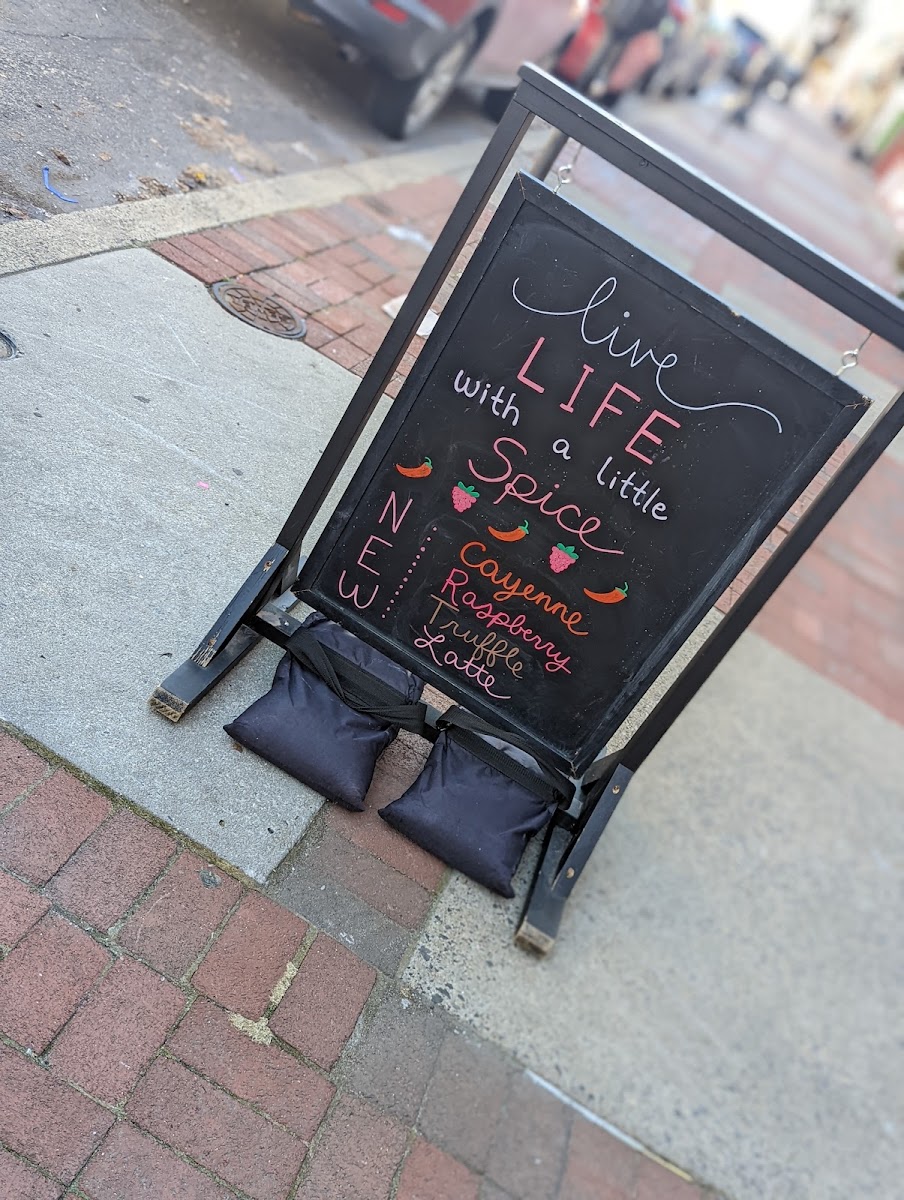 live
LIFE
with a little
Spice
NEW
Cayenne
Raspberry
Truffle
Latte